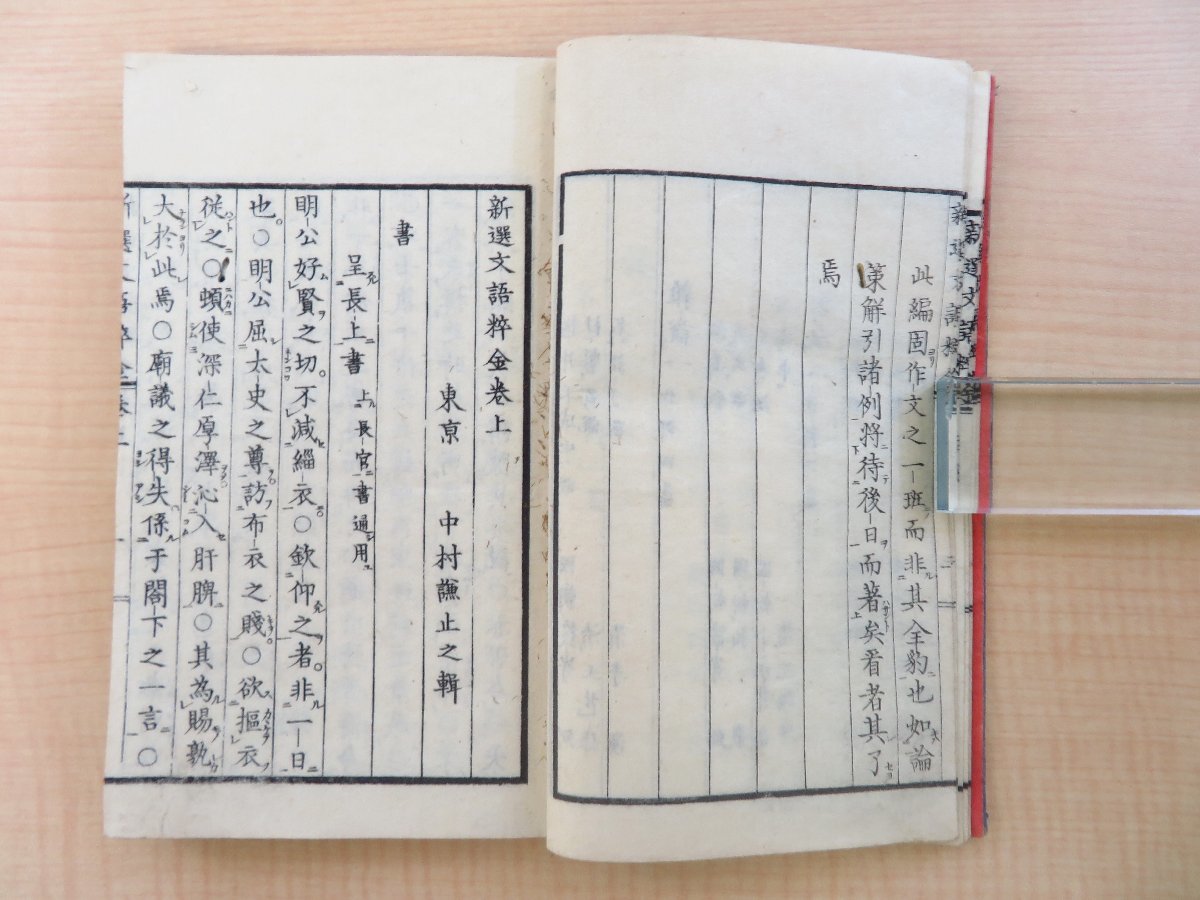 此編固作文之一班而非其全豹也如論
策解引諸例將待後日而著矣看者其了
焉
新選文語粹金卷上
東京 中村謙止之輯
書
呈長上書 上長官書通用
明公好賢之切不減緇衣○欽仰之者非一日
也○明公屈太史之尊訪布衣之賤○欲摳衣
從之○頓使深仁厚澤沁入肝脾○其為賜孰
大於此焉○廟議之得失係于閤下之一言○